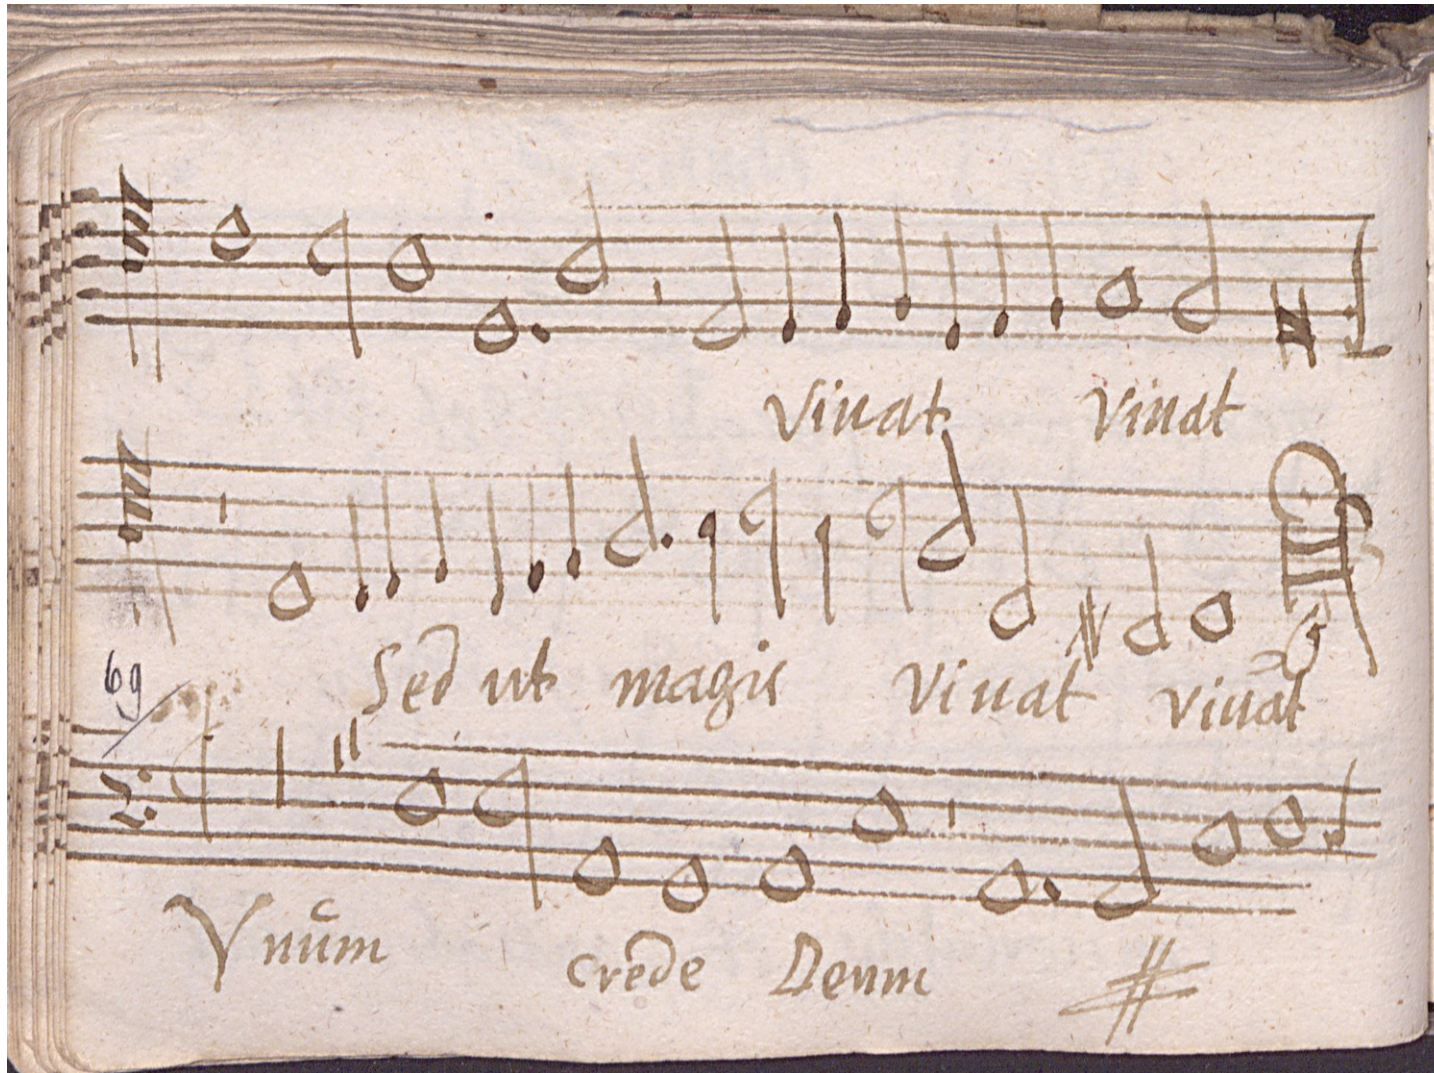 viuat viuat
Sed ut magis viuat viuat
69
Vnũm crede Deum